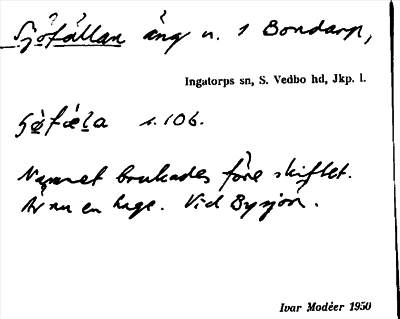 Sjöfållan äng n. 1 Bondarp,
Ingatorps sn, S. Vedbo hd, Jkp. l.
s. 106.
Namnet brukades före skiftet.
Är nu en hage. Vid Bysjön.
Ivar Modéer 1950